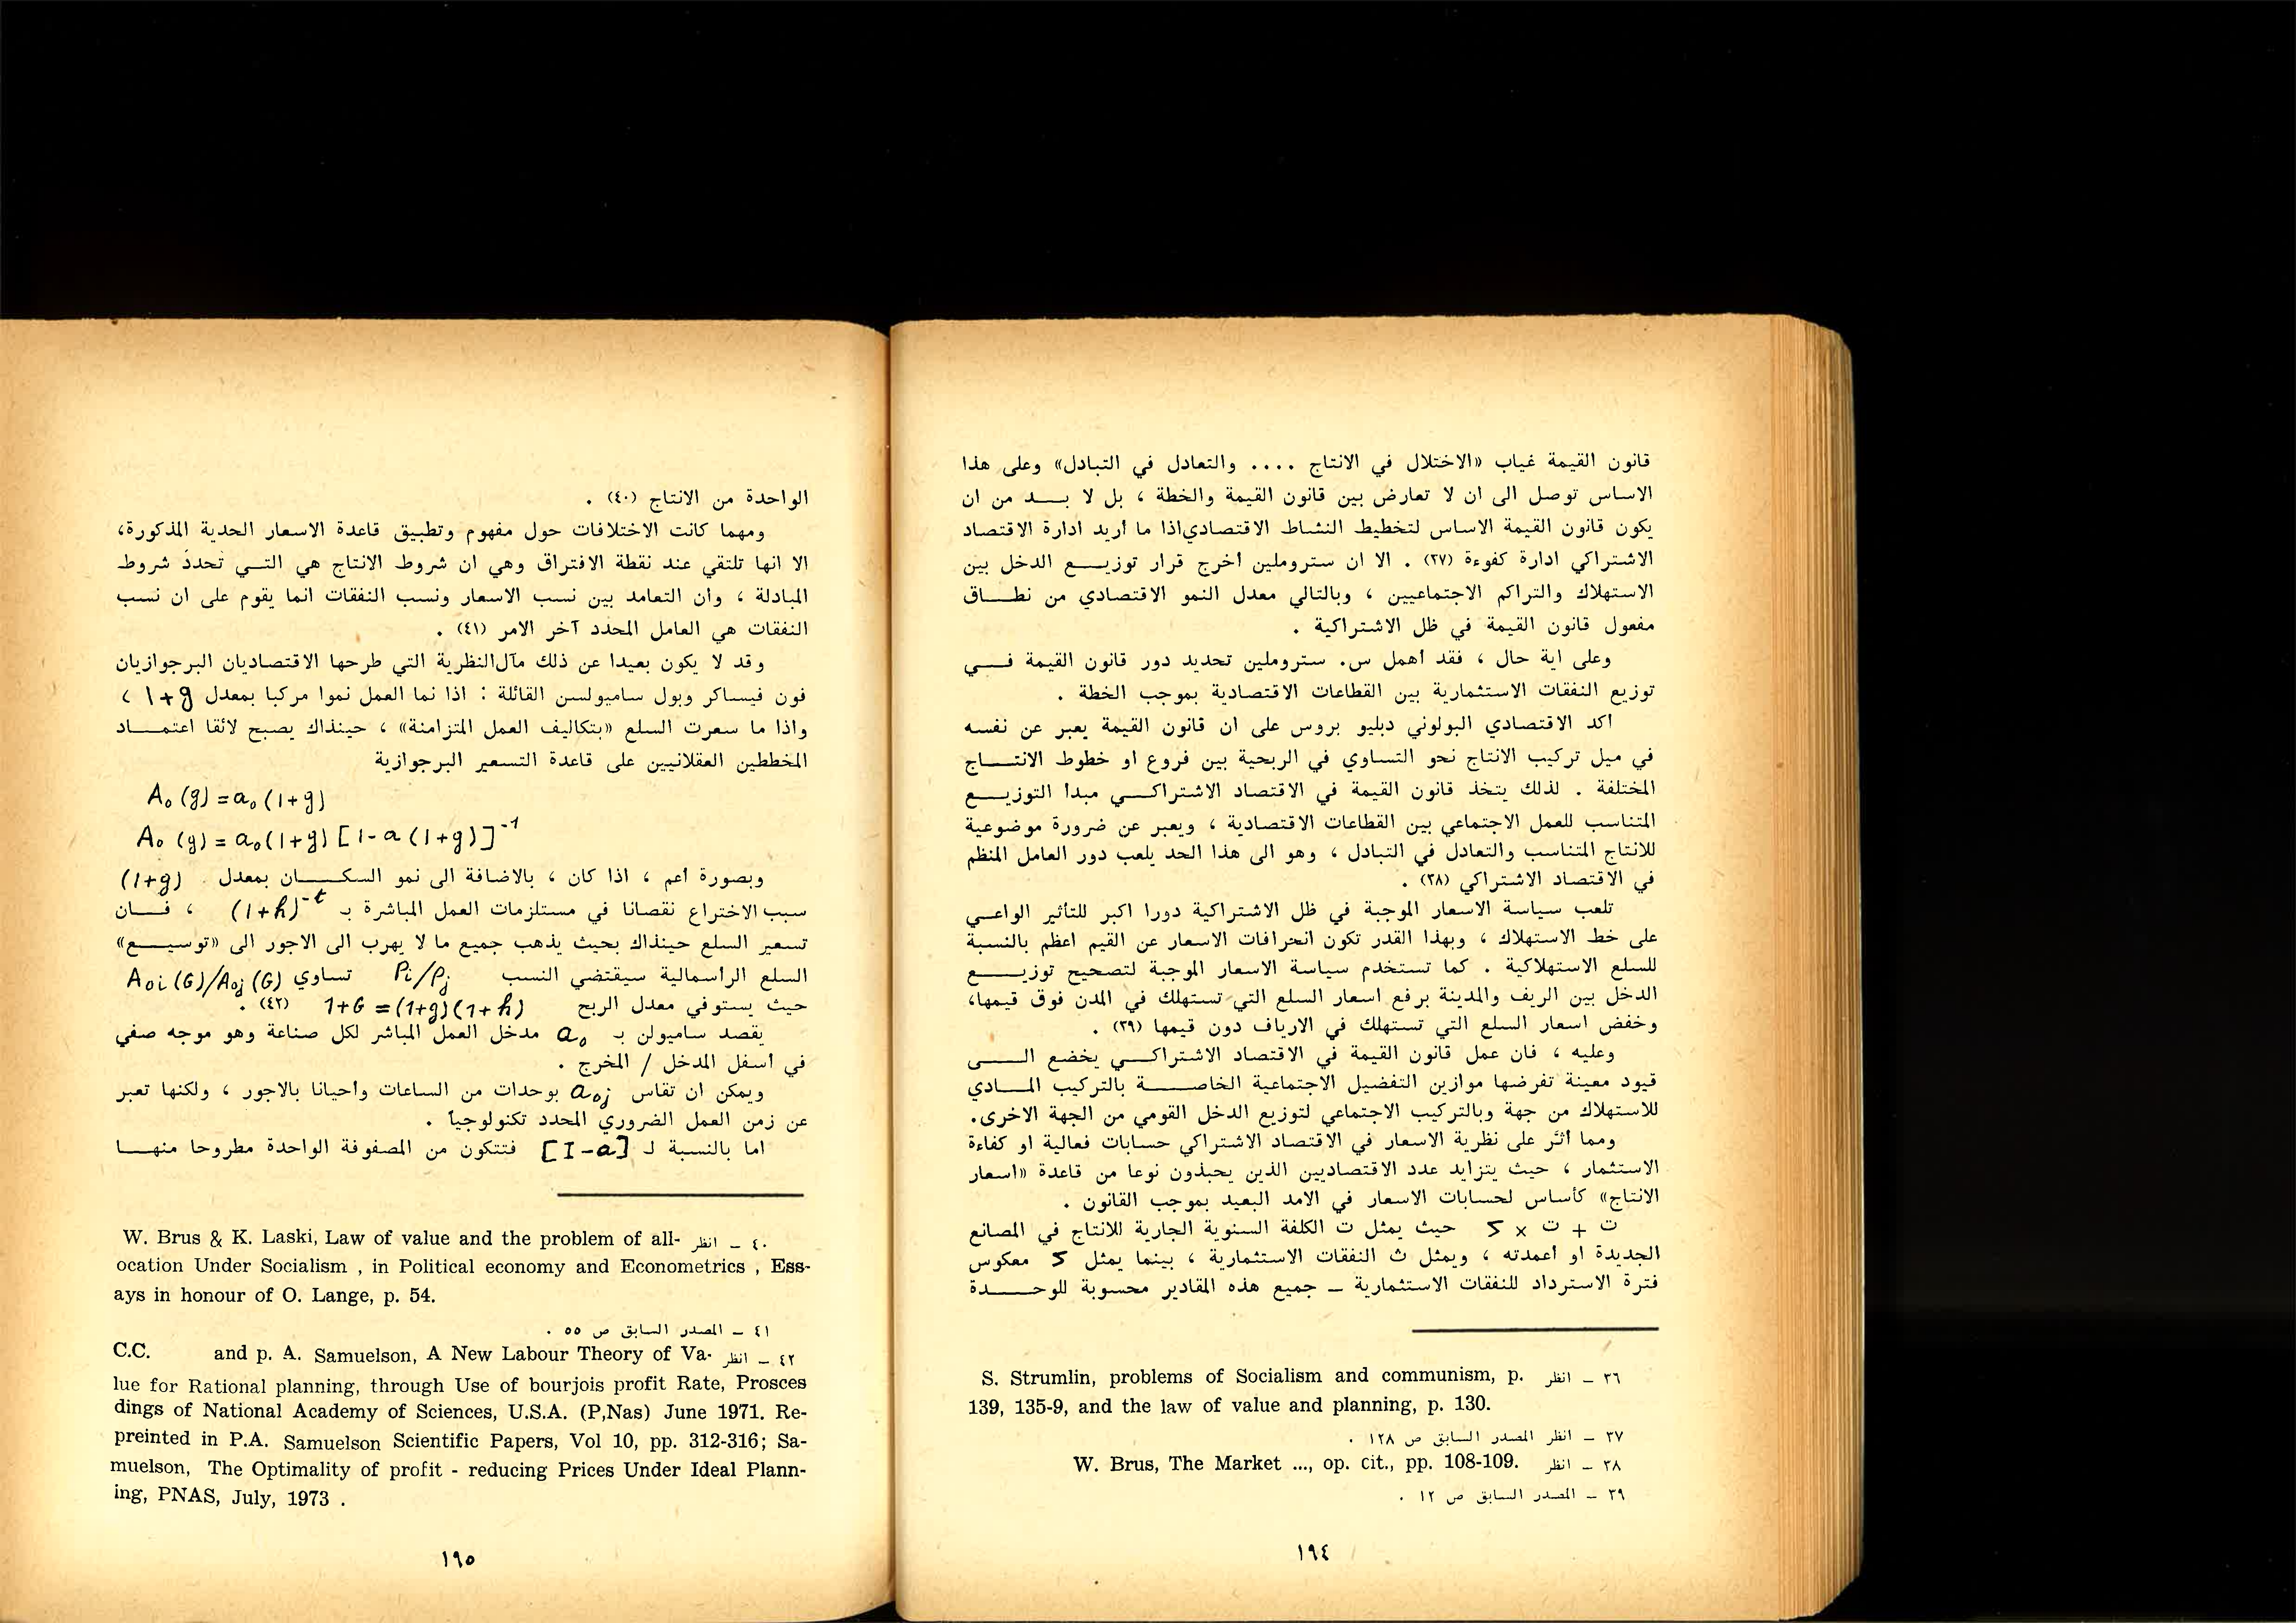 قانون القيمة غياب «الاختلال في الانتاج .... والتعادل في التبادل» وعلى هذا
الاساس توصل الى ان لا تعارض بين قانون القيمة والخطة ، بل لا بـــد من ان
يكون قانون القيمة الاساس لتخطيط النشاط الاقتصادي اذا ما أريد ادارة الاقتصاد
الاشتراكي ادارة كفوءة (٣٧) . الا ان ستروملين اخرج قرار توزيـــع الدخل بين
الاستهلاك والتراكم الاجتماعيين ، وبالتالي معدل النمو الاقتصادي من نطـــاق
مفعول قانون القيمة في ظل الاشتراكية .
وعلى اية حال ، فقد أهمل س. ستروملين تحديد دور قانون القيمة فـــي
توزيع النفقات الاستثمارية بين القطاعات الاقتصادية بموجب الخطة .
اكد الاقتصادي البولوني دبليو بروس على ان قانون القيمة يعبر عن نفسه
في ميل تركيب الانتاج نحو التساوي في الربحية بين فروع او خطوط الانتـــاج
المختلفة . لذلك يتخذ قانون القيمة في الاقتصاد الاشتراكـــي مبدا التوزيـــع
المتناسب للعمل الاجتماعي بين القطاعات الاقتصادية ، ويعبر عن ضرورة موضوعية
للانتاج المتناسب والتعادل في التبادل ، وهو الى هذا الحد يلعب دور العامل المنظم
في الاقتصاد الاشتراكي (٣٨) .
تلعب سياسة الاسعار الموجبة في ظل الاشتراكية دورا اكبر للتأثير الواعـــي
على خط الاستهلاك ، وبهذا القدر تكون انحرافات الاسعار عن القيم اعظم بالنسبة
للسلع الاستهلاكية . كما تستخدم سياسة الاسعار الموجبة لتصحيح توزيـــع
الدخل بين الريف والمدينة برفع اسعار السلع التي تستهلك في المدن فوق قيمها،
وخفض اسعار السلع التي تستهلك في الارياف دون قيمها (٣٩) .
وعليه ، فان عمل قانون القيمة في الاقتصاد الاشتراكـــي يخضع الـــى
قيود معينة تفرضها موازين التفضيل الاجتماعية الخاصـــة بالتركيب المـــادي
للاستهلاك من جهة وبالتركيب الاجتماعي لتوزيع الدخل القومي من الجهة الاخرى.
ومما أثر على نظرية الاسعار في الاقتصاد الاشتراكي حسابات فعالية او كفاءة
الاستثمار ، حيث يتزايد عدد الاقتصاديين الذين يحبذون نوعا من قاعدة «اسعار
الانتاج» كأساس لحسابات الاسعار في الامد البعيد بموجب القانون .
ت + ث × ك حيث يمثل ت الكلفة السنوية الجارية للانتاج في المصانع
الجديدة او اعمدته ، ويمثل ث النفقات الاستثمارية ، بينما يمثل ك معكوس
فترة الاسترداد للنفقات الاستثمارية ــ جميع هذه المقادير محسوبة للوحـــدة
٣٦ ــ انظر S. Strumlin, problems of Socialism and communism, p.
139, 135-9, and the law of value and planning, p. 130.
٣٧ ــ انظر المصدر السابق ص ١٢٨ .
٣٨ ــ انظر W. Brus, The Market ..., op. cit., pp. 108-109.
٣٩ ــ المصدر السابق ص ١٢ .
١٩٤
الواحدة من الانتاج (٤٠) .
ومهما كانت الاختلافات حول مفهوم وتطبيق قاعدة الاسعار الحدية المذكورة،
الا انها تلتقي عند نقطة الافتراق وهي ان شروط الانتاج هي التـــي تحدد شروط
المبادلة ، وأن التعامد بين نسب الاسعار ونسب النفقات انما يقوم على ان نسب
النفقات هي العامل المحدد آخر الامر (٤١) .
وقد لا يكون بعيدا عن ذلك مآل النظرية التي طرحها الاقتصاديان البرجوازيان
فون فيساكر وبول ساميولسن القائلة : اذا نما العمل نموا مركبا بمعدل 1+g ،
واذا ما سعرت السلع «بتكاليف العمل المتزامنة» ، حينذاك يصبح لائقا اعتمـــاد
المخططين العقلانيين على قاعدة التسعير البرجوازية
A₀(g) = a₀(1+g)
A₀(g) = a₀(1+g) [1-a(1+g)]⁻¹
وبصورة أعم ، اذا كان ، بالاضافة الى نمو السكـــان بمعدل (1+g)
سبب الاختراع نقصانا في مستلزمات العمل المباشرة بـ (1+h)⁻ᵗ ، فـــان
تسعير السلع حينذاك بحيث يذهب جميع ما لا يهرب الى الاجور الى «توسيـــع»
السلع الرأسمالية سيقتضي النسب Pi/Pj تساوي A₀i(G)/A₀j(G)
حيث يستوفي معدل الربح 1+G = (1+g)(1+h) (٤٢) .
يقصد ساميولن بـ a₀ مدخل العمل المباشر لكل صناعة وهو موجه صفي
في أسفل المدخل / المخرج .
ويمكن ان تقاس a₀j بوحدات من الساعات وأحيانا بالاجور ، ولكنها تعبر
عن زمن العمل الضروري المحدد تكنولوجيا .
اما بالنسبة لـ [I-a] فتتكون من المصفوفة الواحدة مطروحا منهـــا
٤٠ ــ انظر W. Brus & K. Laski, Law of value and the problem of all-
ocation Under Socialism , in Political economy and Econometrics , Ess-
ays in honour of O. Lange, p. 54.
٤١ ــ المصدر السابق ص ٥٥ .
٤٢ ــ انظر C.C. and p. A. Samuelson, A New Labour Theory of Va-
lue for Rational planning, through Use of bourjois profit Rate, Prosces
dings of National Academy of Sciences, U.S.A. (P,Nas) June 1971. Re-
preinted in P.A. Samuelson Scientific Papers, Vol 10, pp. 312-316; Sa-
muelson, The Optimality of profit - reducing Prices Under Ideal Plann-
ing, PNAS, July, 1973 .
١٩٥